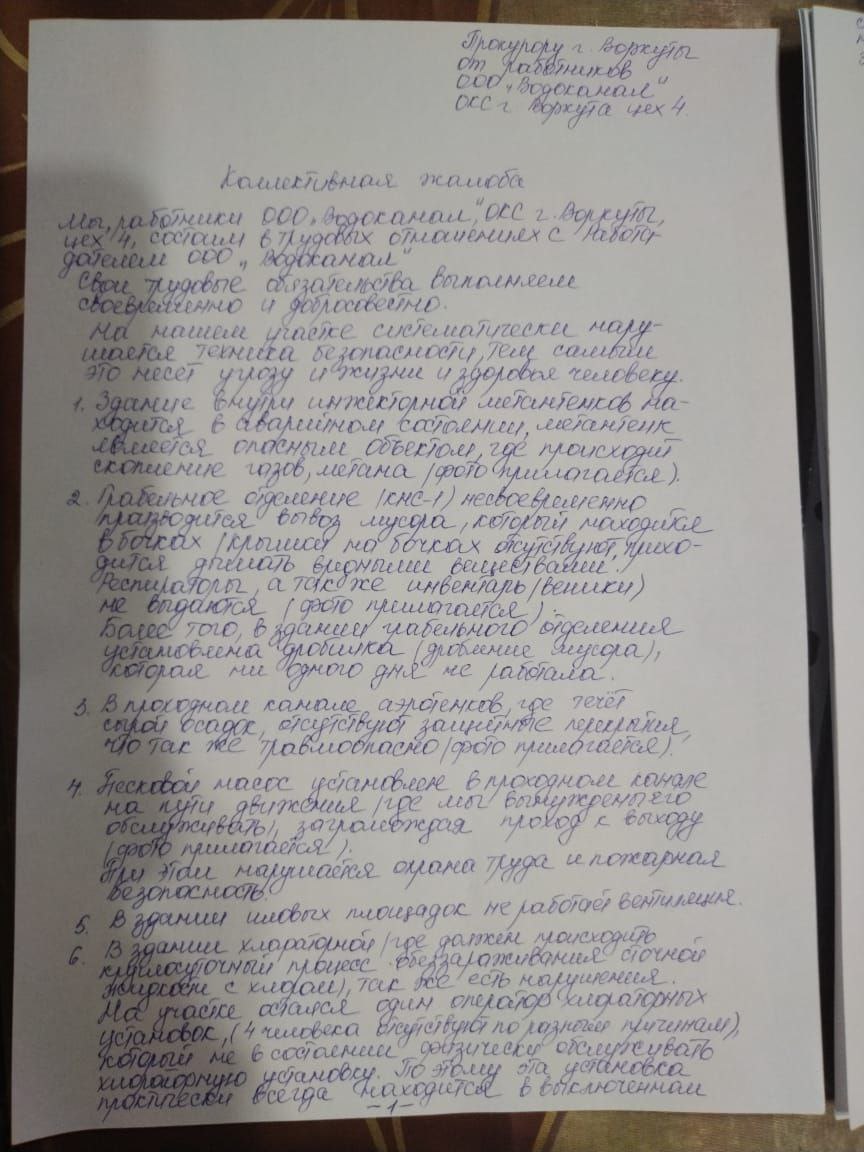 Прокурору г. Воркуты
от работников
ООО „Водоканал"
ОКС г Воркута цех 4.
Коллективная жалоба
Мы, работники ООО „Водоканал", ОКС г. Воркуты,
цех 4, состоим в трудовых отношениях с Работо-
дателем ООО „Водоканал"
Свои трудовые обязательства выполняем
своевременно и добросовестно.
На нашем участке систематически нару-
шается техника безопасности, тем самым
это несёт угрозу и жизни и здоровья человеку.
1. Здание внутри инжекторной метантенков на-
ходится в аварийном состоянии, метантенк
является опасным объектом, где происходит
скопление газов, метана (фото прилагается).
2. Грабельное отделение (КНС-1) несвоевременно
производится вывоз мусора, который находится
в бочках (крышки на бочках отсутствуют, прихо-
дится дышать вредными веществами.)
Респираторы, а так же инвентарь (веники)
не выдаются (фото прилагается).
Более того, в здании грабельного отделения
установлена дробилка (дробление мусора),
которая ни одного дня не работала.
3. В проходном канале аэротенков, где течёт
сырой осадок, отсутствуют защитные перекрытия,
что так же травмоопасно (фото прилагается).
4. Песковой насос установлен в проходном канале
на пути движения (где мы вынуждены его
обслуживать), загромождая проход к выходу
(фото прилагается).
При этом нарушается охрана труда и пожарная
безопасность.
5. В здании иловых площадок не работает вентиляция.
6. В здании хлораторной (где должен происходить
круглосуточный процесс обеззараживания сточной
жидкости с хлором), так же есть нарушения.
На участке остался один оператор хлораторных
установок, (4 человека отсутствуют по разным причинам),
который не в состоянии физически обслуживать
хлораторную установку. По этому эта установка
практически всегда находится в выключенном
-1-